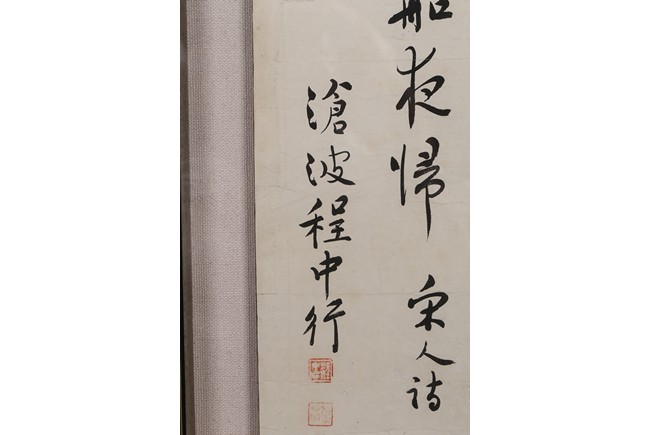 船夜帰 宋人詩
滄波程中行